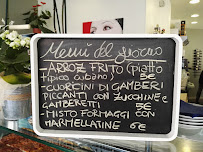 Menù del giorno
-ARROZ FRITO (piatto
tipico cubano) 5€
-CUORICINI DI GAMBERI
PICCANTI CON ZUCCHINE e
GAMBERETTI 8€
-MISTO FORMAGGI CON
MARMELLATINE 6€